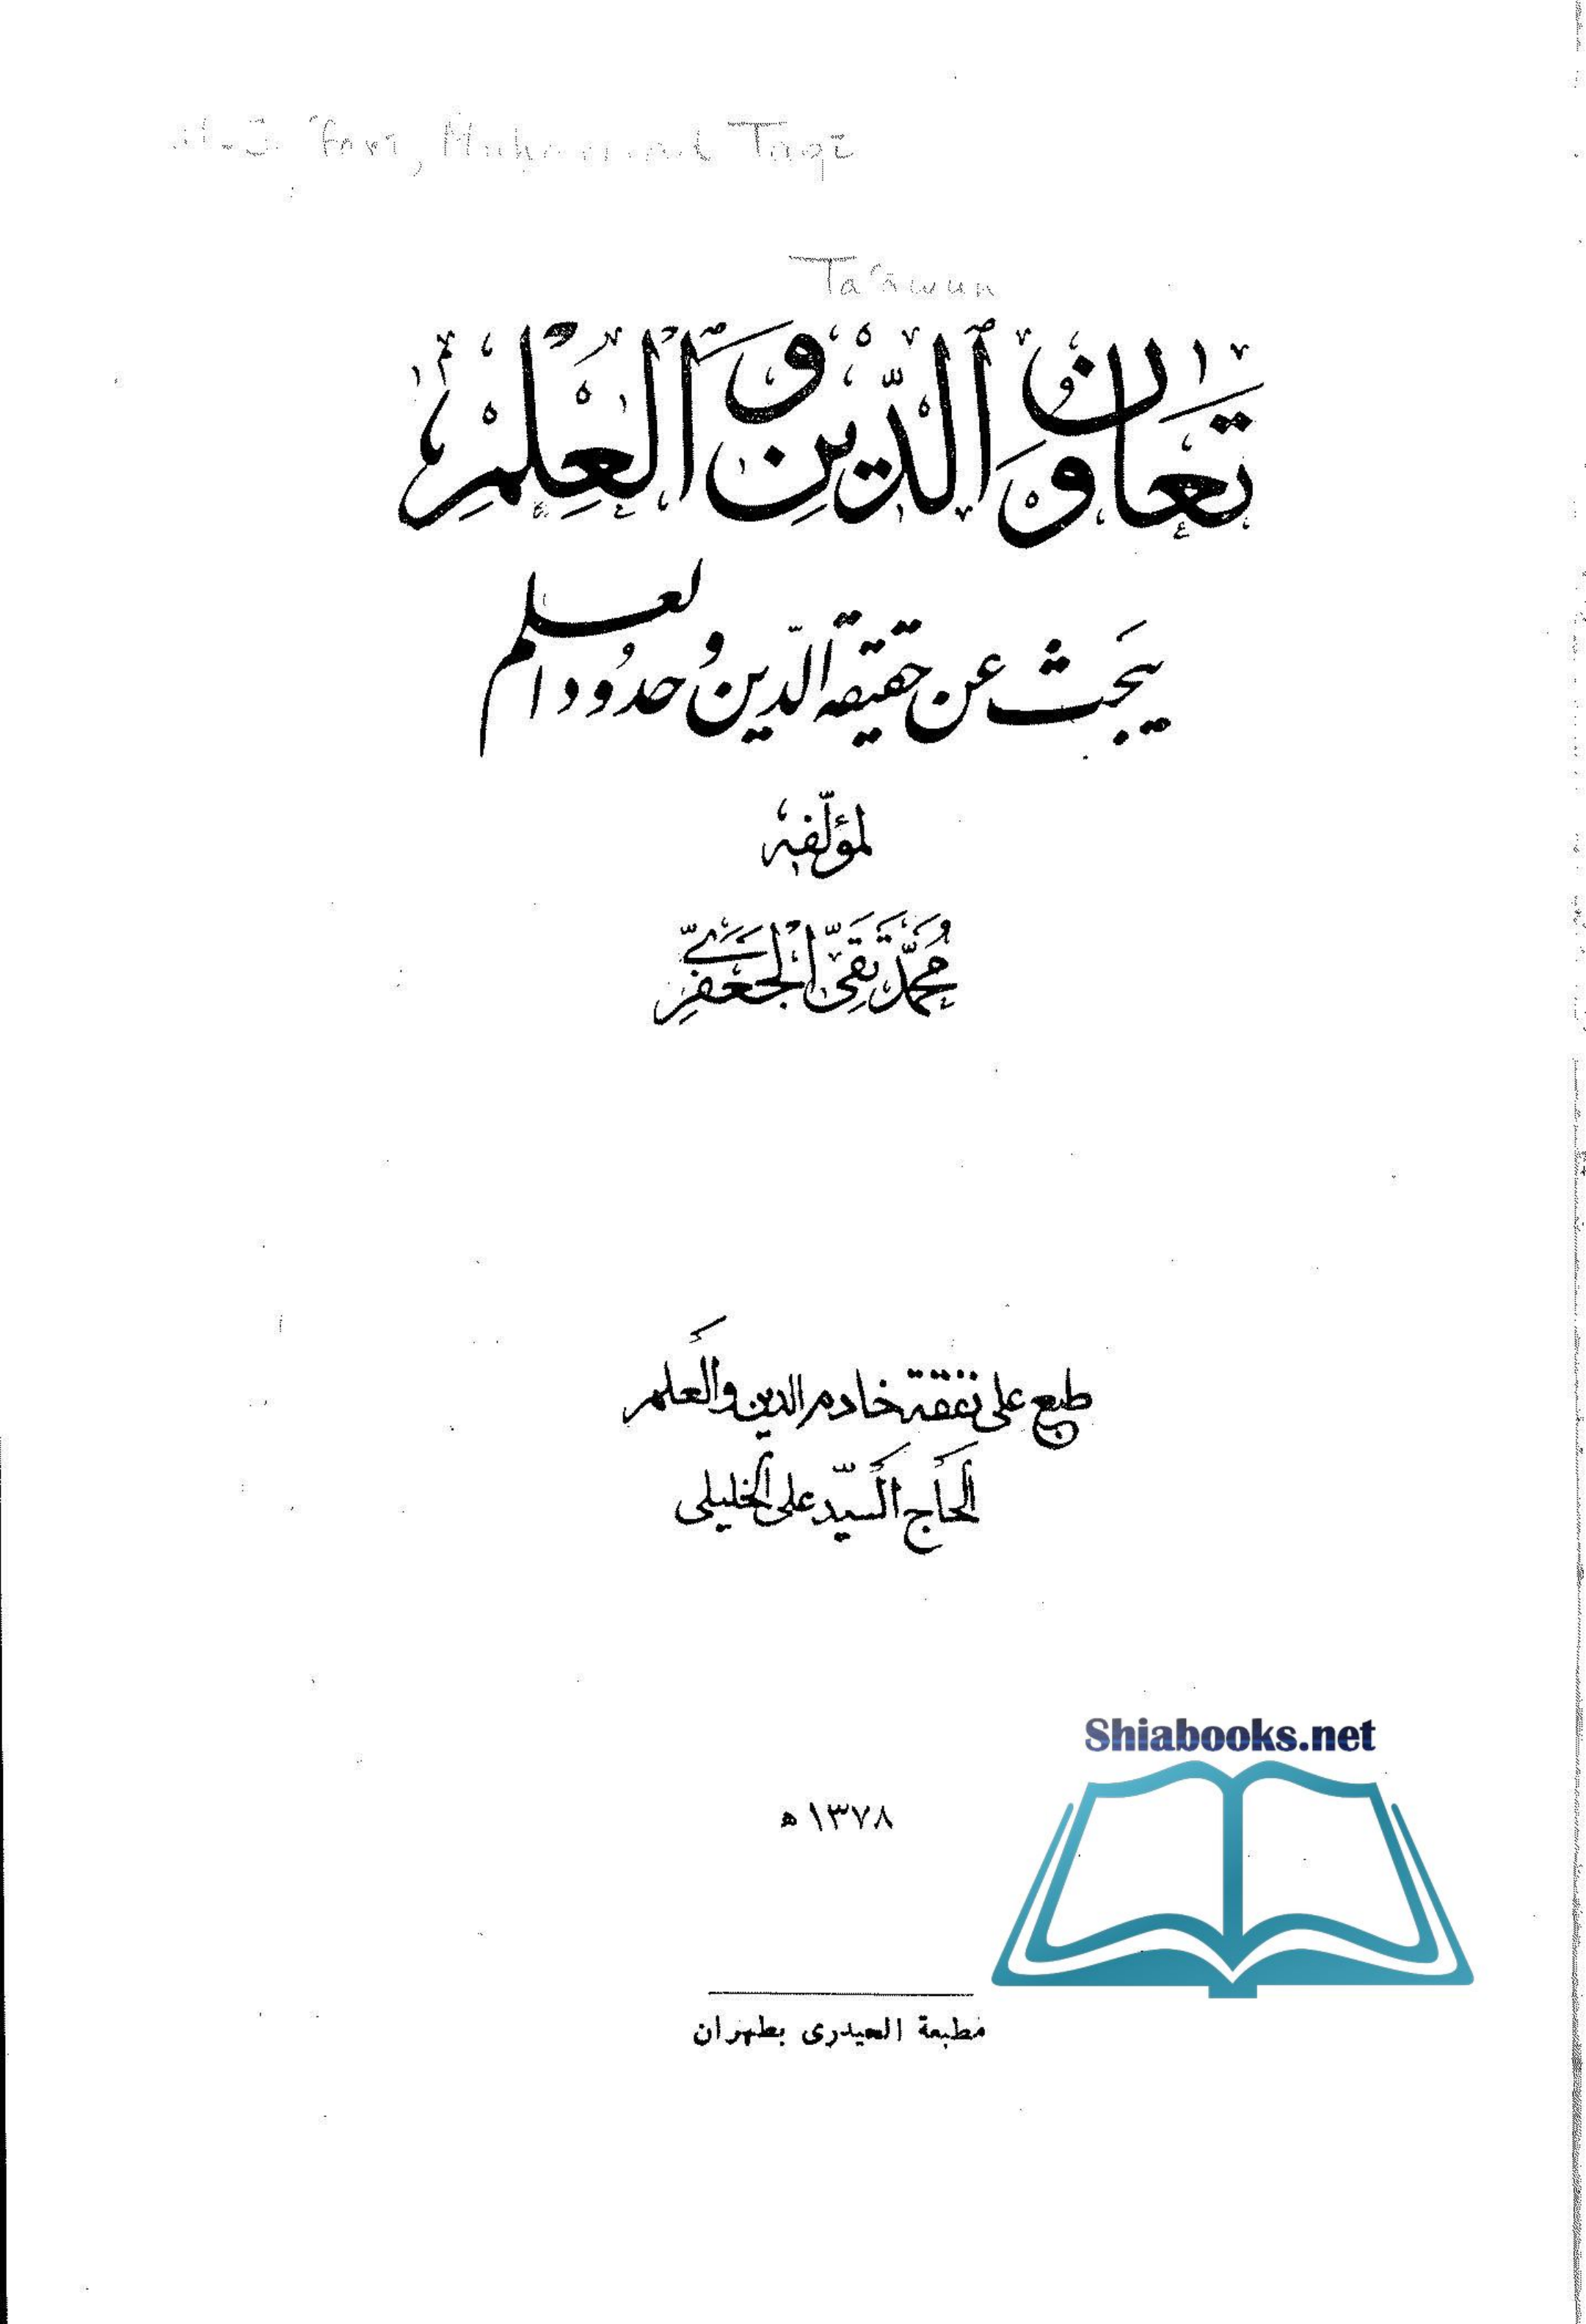 al-Ja'farī, Muhammad Taqī
Ta'āwun
تَعَاوُنُ ٱلدِّينِ وَالْعِلْمِ
يبحث عن حقيقة الدّين وحدُود العلم
لمؤلّفه
مُحَمَّد تَقِيّ الْجَعْفَرِيّ
طبع على نفقة خادم الدين والعلم
الحَاج السَيّد على الخليلى
١٣٧٨ ه
Shiabooks.net
مطبعة الحيدرى بطهران